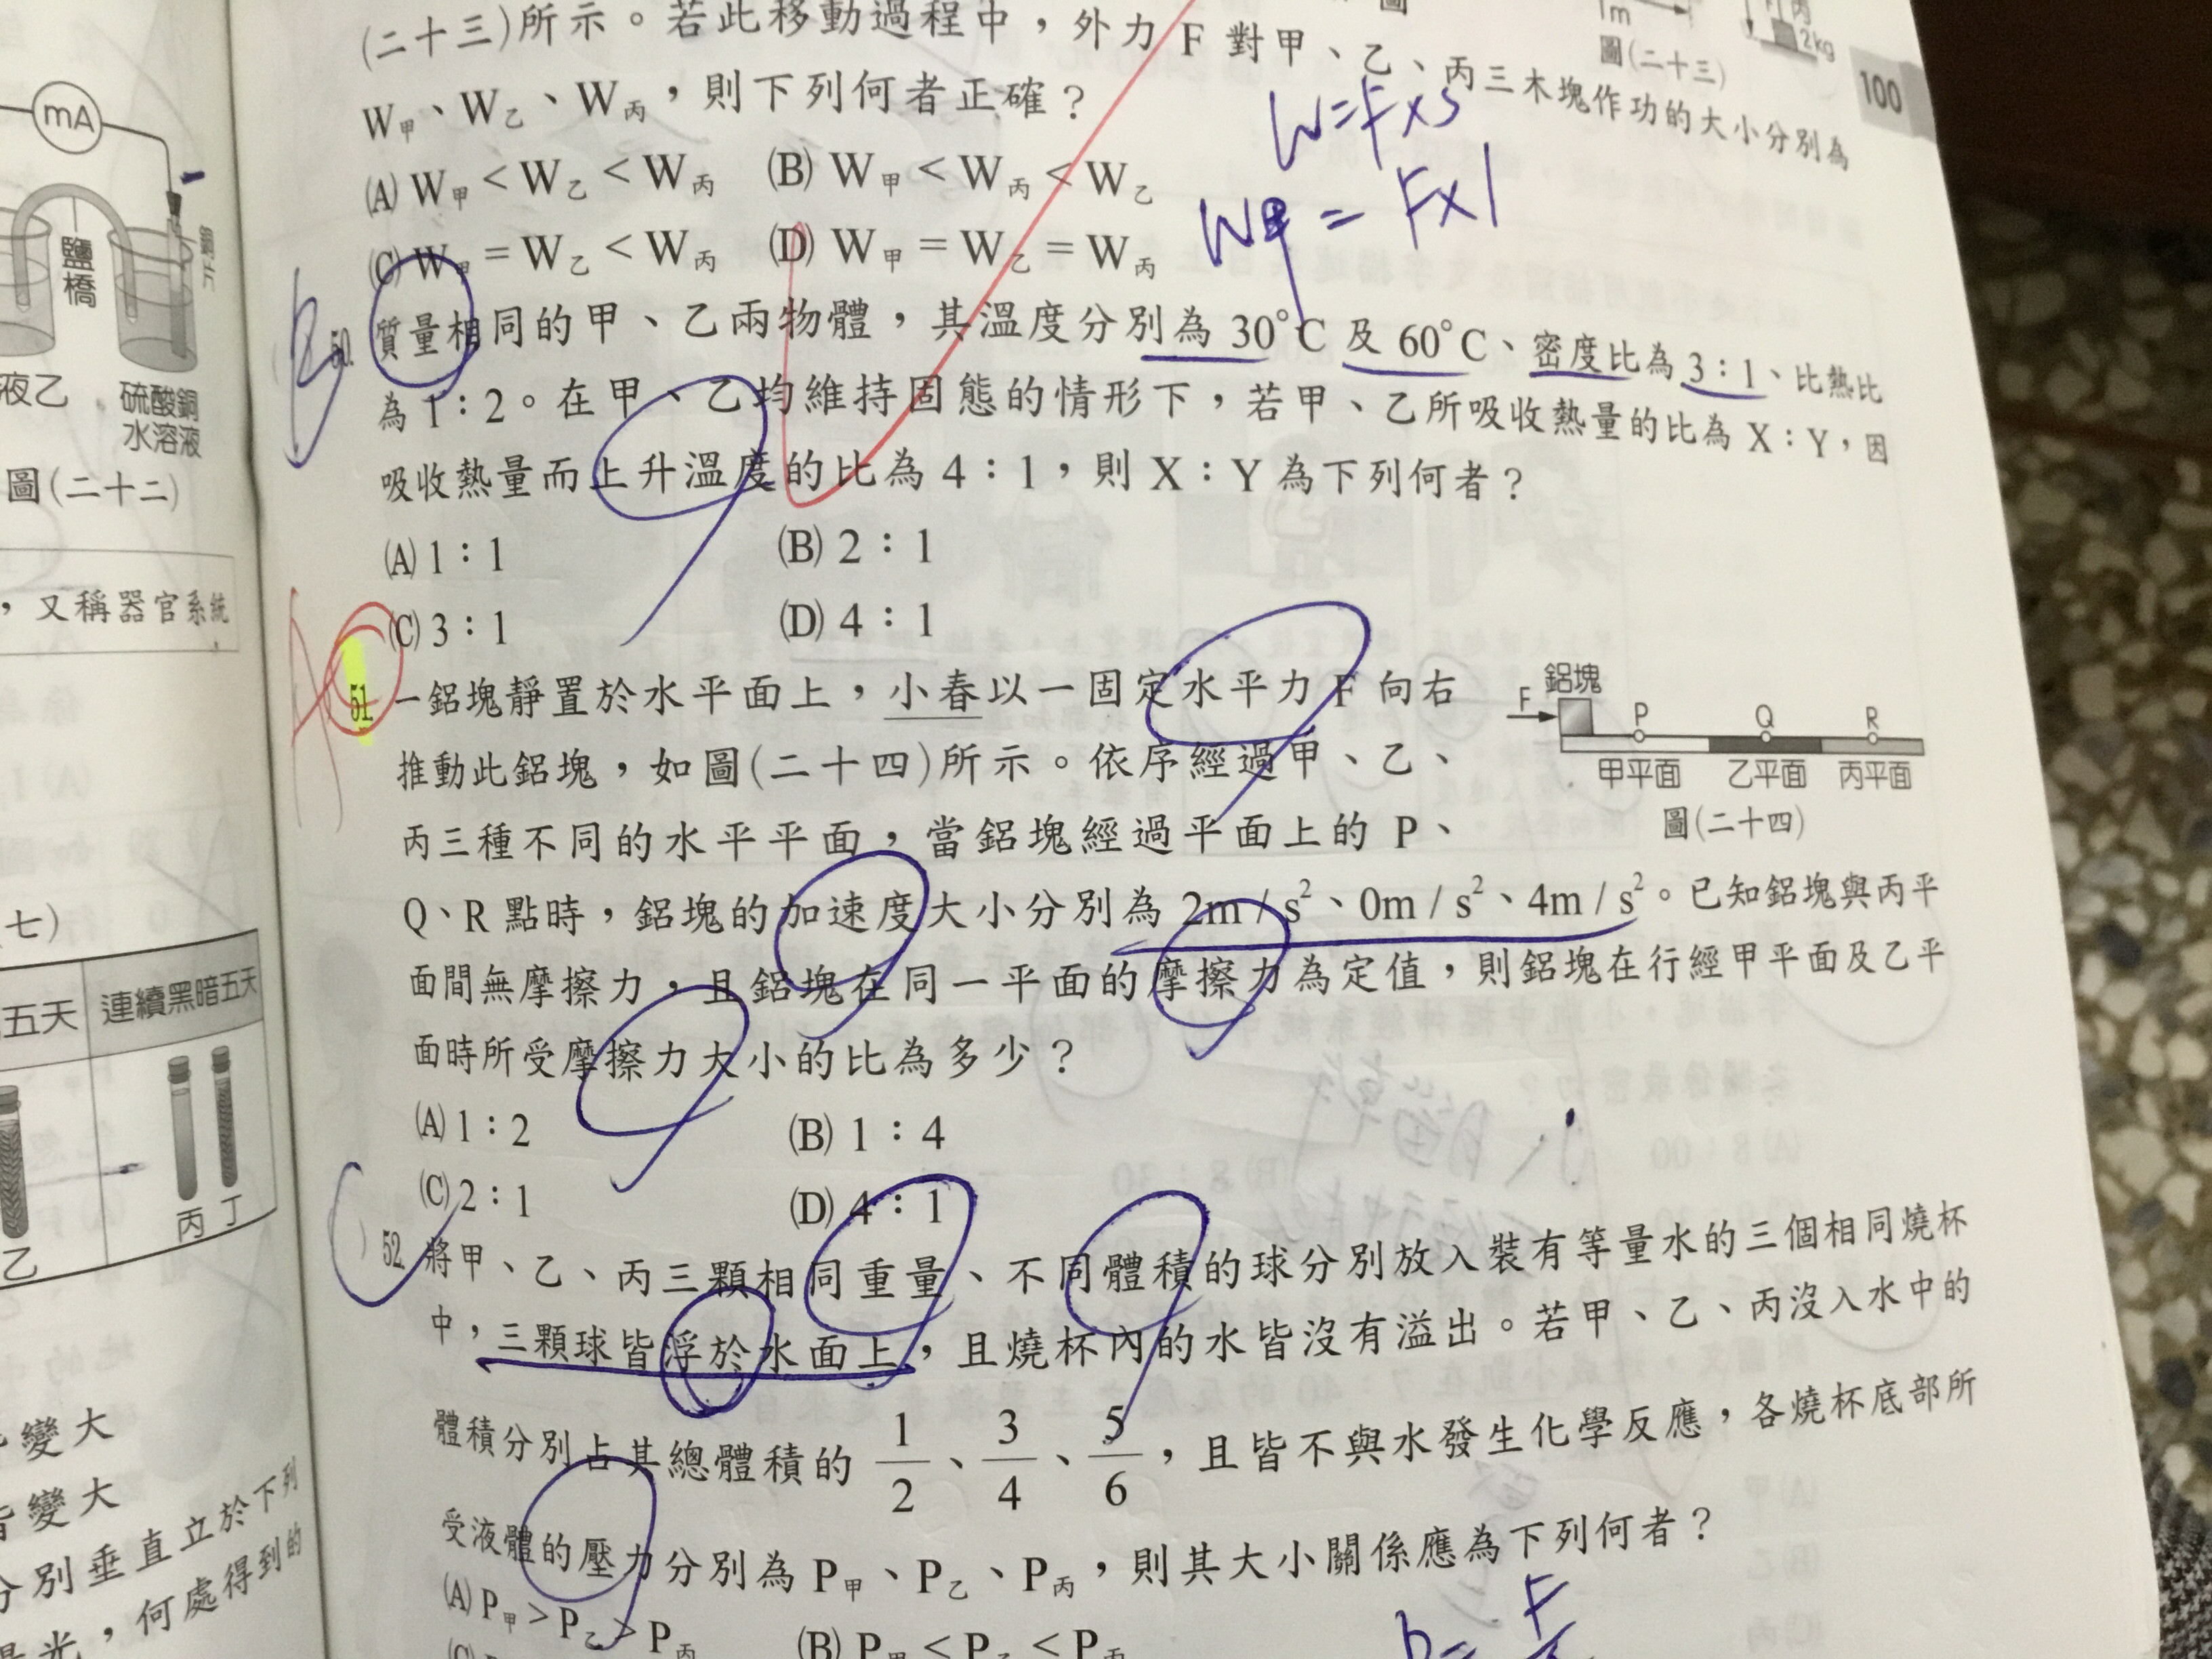 mA
鹽橋
液乙
硫酸銅
水溶液
圖(二十二)
，又稱器官系統，
(七)
五天 連續黑暗五天
乙 丙 丁
變大
皆變大
分別垂直立於下列
，何處得到的
100
1m
圖(二十三)
丙
2kg
(二十三)所示。若此移動過程中，外力 F 對甲、乙、丙三木塊作功的大小分別為
W甲、W乙、W丙，則下列何者正確？
(A) W甲 < W乙 < W丙 (B) W甲 < W丙 < W乙
(C) W甲 = W乙 < W丙 (D) W甲 = W乙 = W丙
W=F×S
W甲 = F×1
B
50. 質量相同的甲、乙兩物體，其溫度分別為 30°C 及 60°C、密度比為 3：1、比熱比
為 1：2。在甲、乙均維持固態的情形下，若甲、乙所吸收熱量的比為 X：Y，因
吸收熱量而上升溫度的比為 4：1，則 X：Y 為下列何者？
(A) 1：1 (B) 2：1
(C) 3：1 (D) 4：1
A
51. 一鋁塊靜置於水平面上，小春以一固定水平力 F 向右
推動此鋁塊，如圖(二十四)所示。依序經過甲、乙、
丙三種不同的水平平面，當鋁塊經過平面上的 P、
Q、R 點時，鋁塊的加速度大小分別為 2m / s²、0m / s²、4m / s²。已知鋁塊與丙平
面間無摩擦力，且鋁塊在同一平面的摩擦力為定值，則鋁塊在行經甲平面及乙平
面時所受摩擦力大小的比為多少？
(A) 1：2 (B) 1：4
(C) 2：1 (D) 4：1
F 鋁塊 P Q R
甲平面 乙平面 丙平面
圖(二十四)
52. 將甲、乙、丙三顆相同重量、不同體積的球分別放入裝有等量水的三個相同燒杯
中，三顆球皆浮於水面上，且燒杯內的水皆沒有溢出。若甲、乙、丙沒入水中的
體積分別占其總體積的 1/2、3/4、5/6，且皆不與水發生化學反應，各燒杯底部所
受液體的壓力分別為 P甲、P乙、P丙，則其大小關係應為下列何者？
(A) P甲 > P乙 > P丙 (B) P甲 < P乙 < P丙